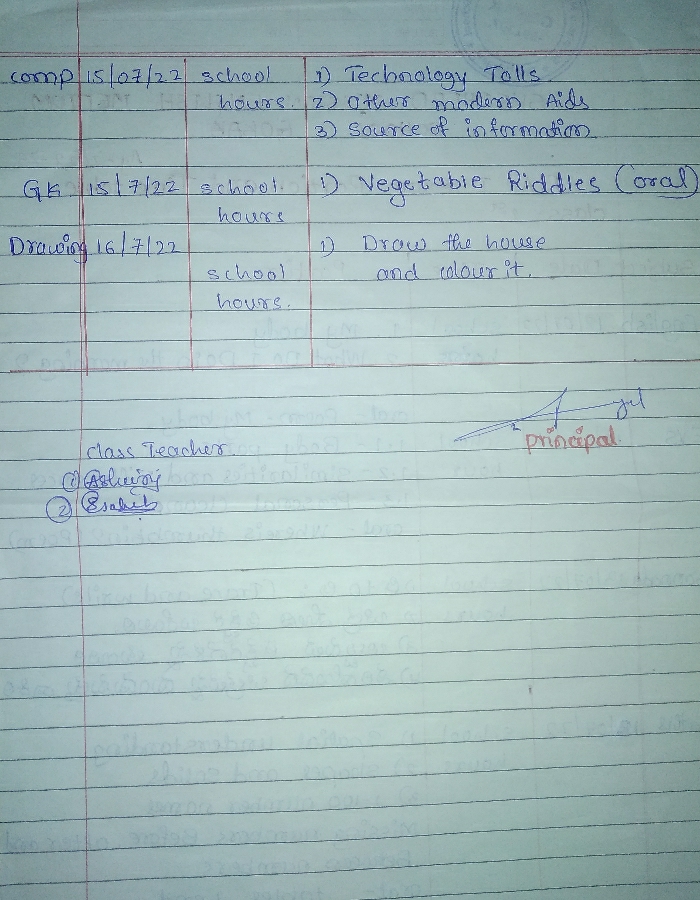 comp 15/07/22 school 1) Technology Tolls.
hours. 2) other modern Aids
3) Source of information
GK 15/7/22 school 1) Vegetable Riddles (oral)
hours
Drawing 16/7/22 1) Draw the house
school and colour it.
hours.
principal
class Teacher
①
②